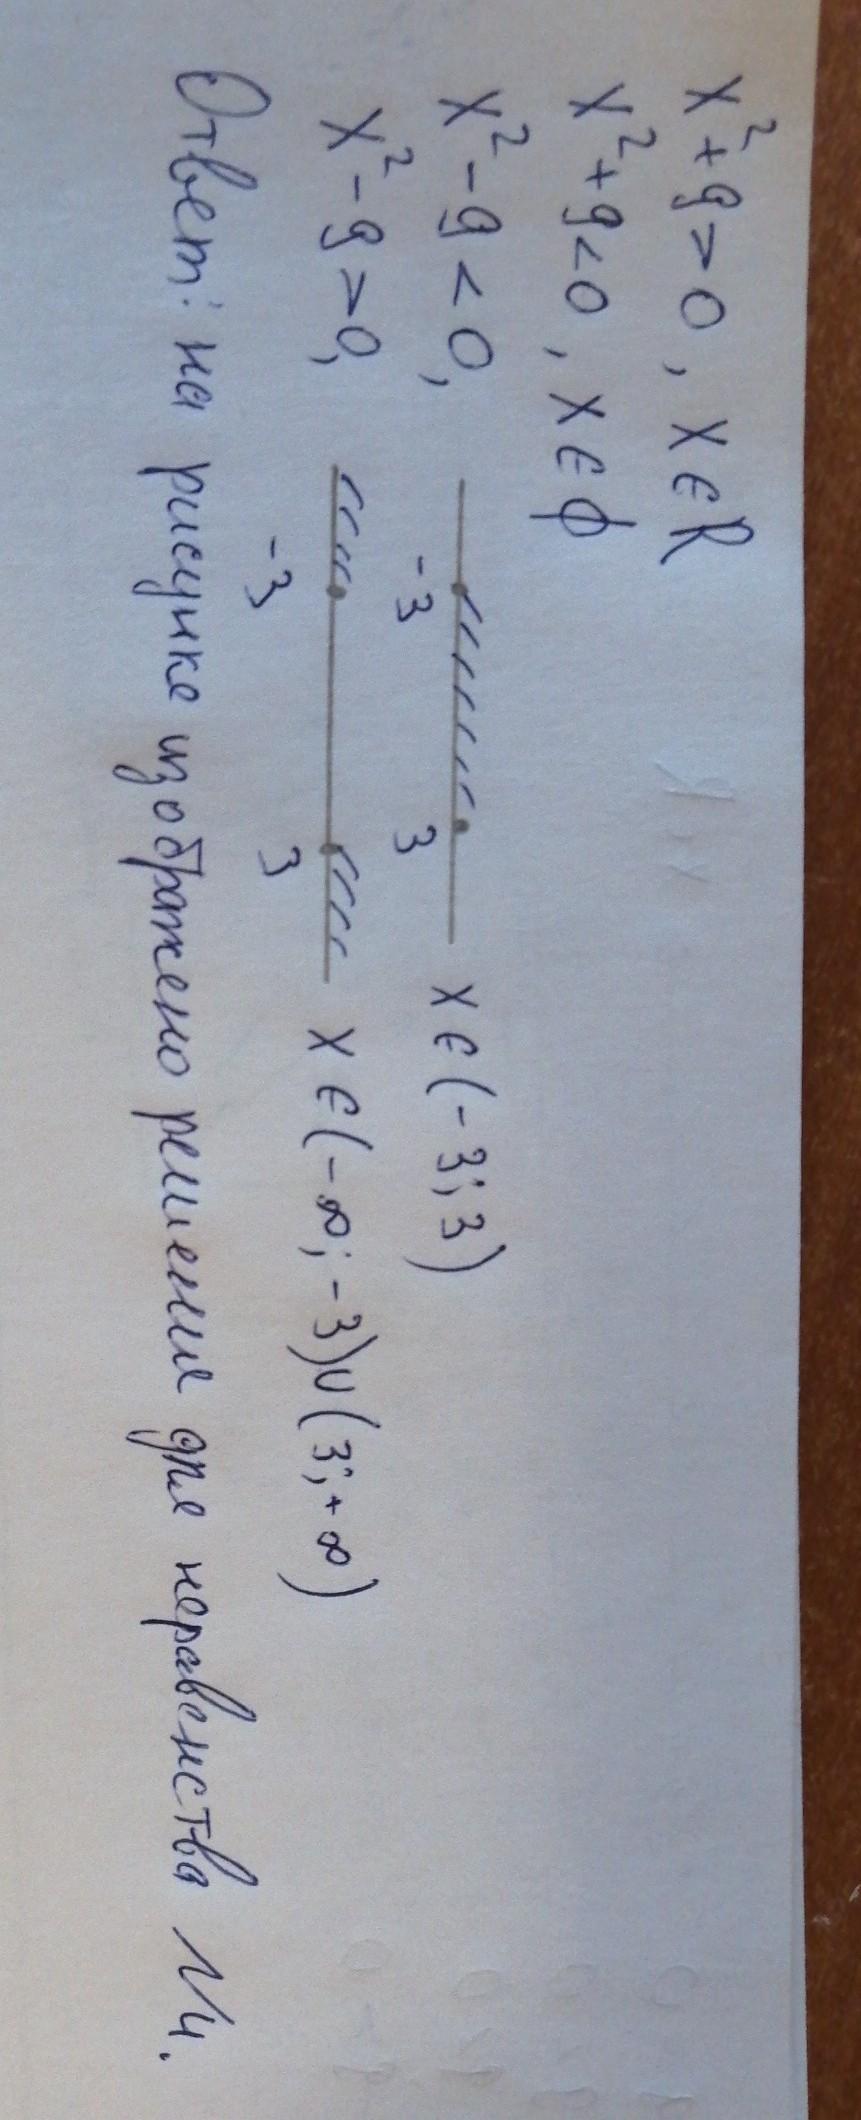 x²+9>0, x∈R
x²+9<0, x∈ϕ
x²-9<0, -3 3 x∈(-3;3)
x²-9>0, -3 3 x∈(-∞;-3)∪(3;+∞)
Ответ: на рисунке изображено решения для неравенства №4.